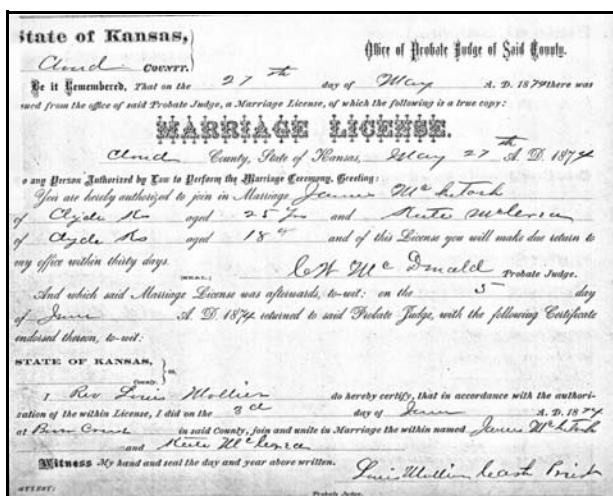 State of Kansas,
Cloud COUNTY.
Office of Probate Judge of Said County.
Be it Remembered, That on the 27th day of May A. D. 1874 there was
sued from the office of said Probate Judge, a Marriage License, of which the following is a true copy:
MARRIAGE LICENSE.
Cloud County, State of Kansas, May 27th A. D. 1874
o any Person Authorized by Law to Perform the Marriage Ceremony, Greeting:
You are hereby authorized to join in Marriage James McIntosh
of Clyde Ks aged 25 yrs and Kate
of Clyde Ks aged 18 " and of this License you will make due return to
my office within thirty days.
[SEAL.] C W McDonald Probate Judge.
And which said Marriage License was afterwards, to-wit: on the 5 day
of June A. D. 1874 returned to said Probate Judge, with the following Certificate
endorsed thereon, to-wit:
STATE OF KANSAS,
County. ss.
I Rev Louis Mollier do hereby certify, that in accordance with the authori-
zation of the within License, I did on the 3d day of June A. D. 1874
at in said County, join and unite in Marriage the within named James McIntosh
and Kate
Witness My hand and seal the day and year above written.
Louis Mollier Cath Priest
ATTEST:
Probate Judge.